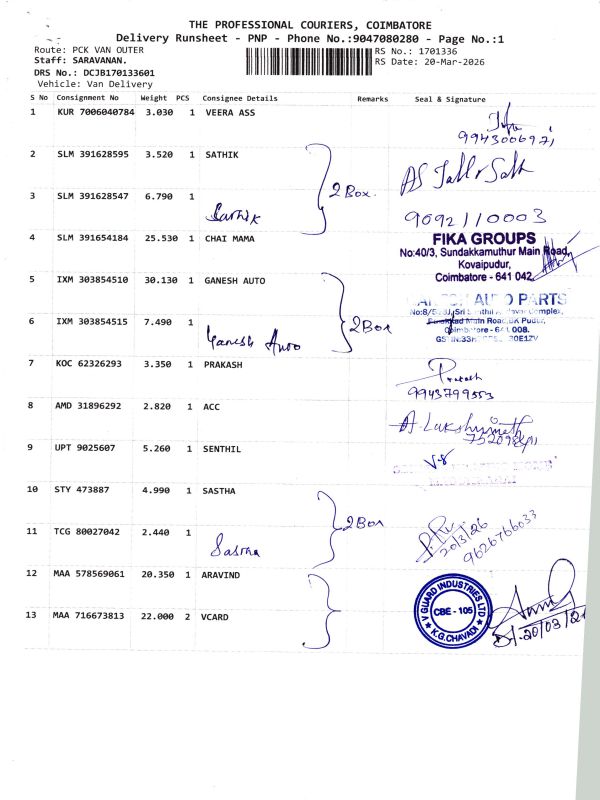 THE PROFESSIONAL COURIERS, COIMBATORE
Delivery Runsheet - PNP - Phone No.:9047080280 - Page No.:1
Route: PCK VAN OUTER
RS No.: 1701336
Staff: SARAVANAN.
RS Date: 20-Mar-2026
DRS No.: DCJB170133601
Vehicle: Van Delivery
S No Consignment No Weight PCS Consignee Details Remarks Seal & Signature
1 KUR 7006040784 3.030 1 VEERA ASS
9943006971
2 SLM 391628595 3.520 1 SATHIK
2 Box.
3 SLM 391628547 6.790 1
Sathik
9092110003
4 SLM 391654184 25.530 1 CHAI MAMA
FIKA GROUPS
No:40/3, Sundakkamuthur Main Road,
Kovaipudur,
Coimbatore - 641 042
5 IXM 303854510 30.130 1 GANESH AUTO
AUTO PARTS
Complex,
Main Road, BK Pudur,
Coimbatore - 641 008.
6 IXM 303854515 7.490 1
2 Box
Ganesh Auto
7 KOC 62326293 3.350 1 PRAKASH
Prakash
9943799553
8 AMD 31896292 2.820 1 ACC
A. Lakshminath
9 UPT 9025607 5.260 1 SENTHIL
10 STY 473887 4.990 1 SASTHA
2 Box
11 TCG 80027042 2.440 1
Sastha
20/3/26
9626766033
12 MAA 578569061 20.350 1 ARAVIND
V GUARD INDUSTRIES LTD
CBE - 105
K.G.CHAVADI
13 MAA 716673813 22.000 2 VCARD